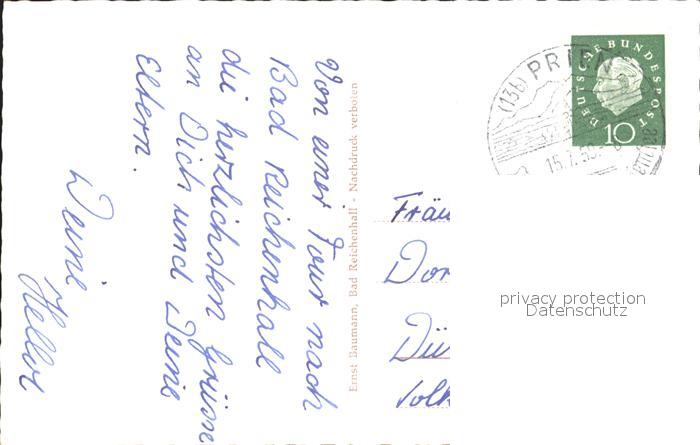 Von einer Tour nach
Bad Reichenhall
die herzlichsten Grüsse
an Dich und Deine
Eltern.
Deine
Ernst Baumann, Bad Reichenhall - Nachdruck verboten
(13b) PRIEN
15.7.59
DEUTSCHE BUNDESPOST
10
Fräu
Dor
Dü
Volk
privacy protection
Datenschutz